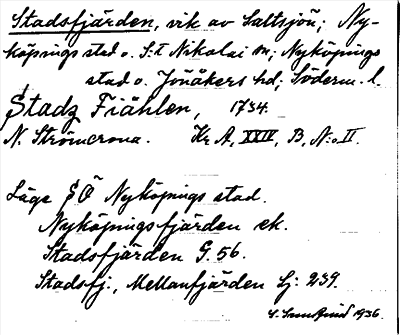 Stadsfjärden, vik av Saltsjön; Ny-
köpings stad o. S:t Nikolai sn; Nyköpings
stad o. Jönåkers hd; Söderm. l.
Stadz Fiählen, 1734.
N. Strömcrona. Kr. A, XXIV, B, N:o II.
Läge SÖ Nyköpings stad.
Nyköpingsfjärden ek.
Stadsfjärden G. 56.
Stadsfj., Mellanfjärden Lj: 239.
1936